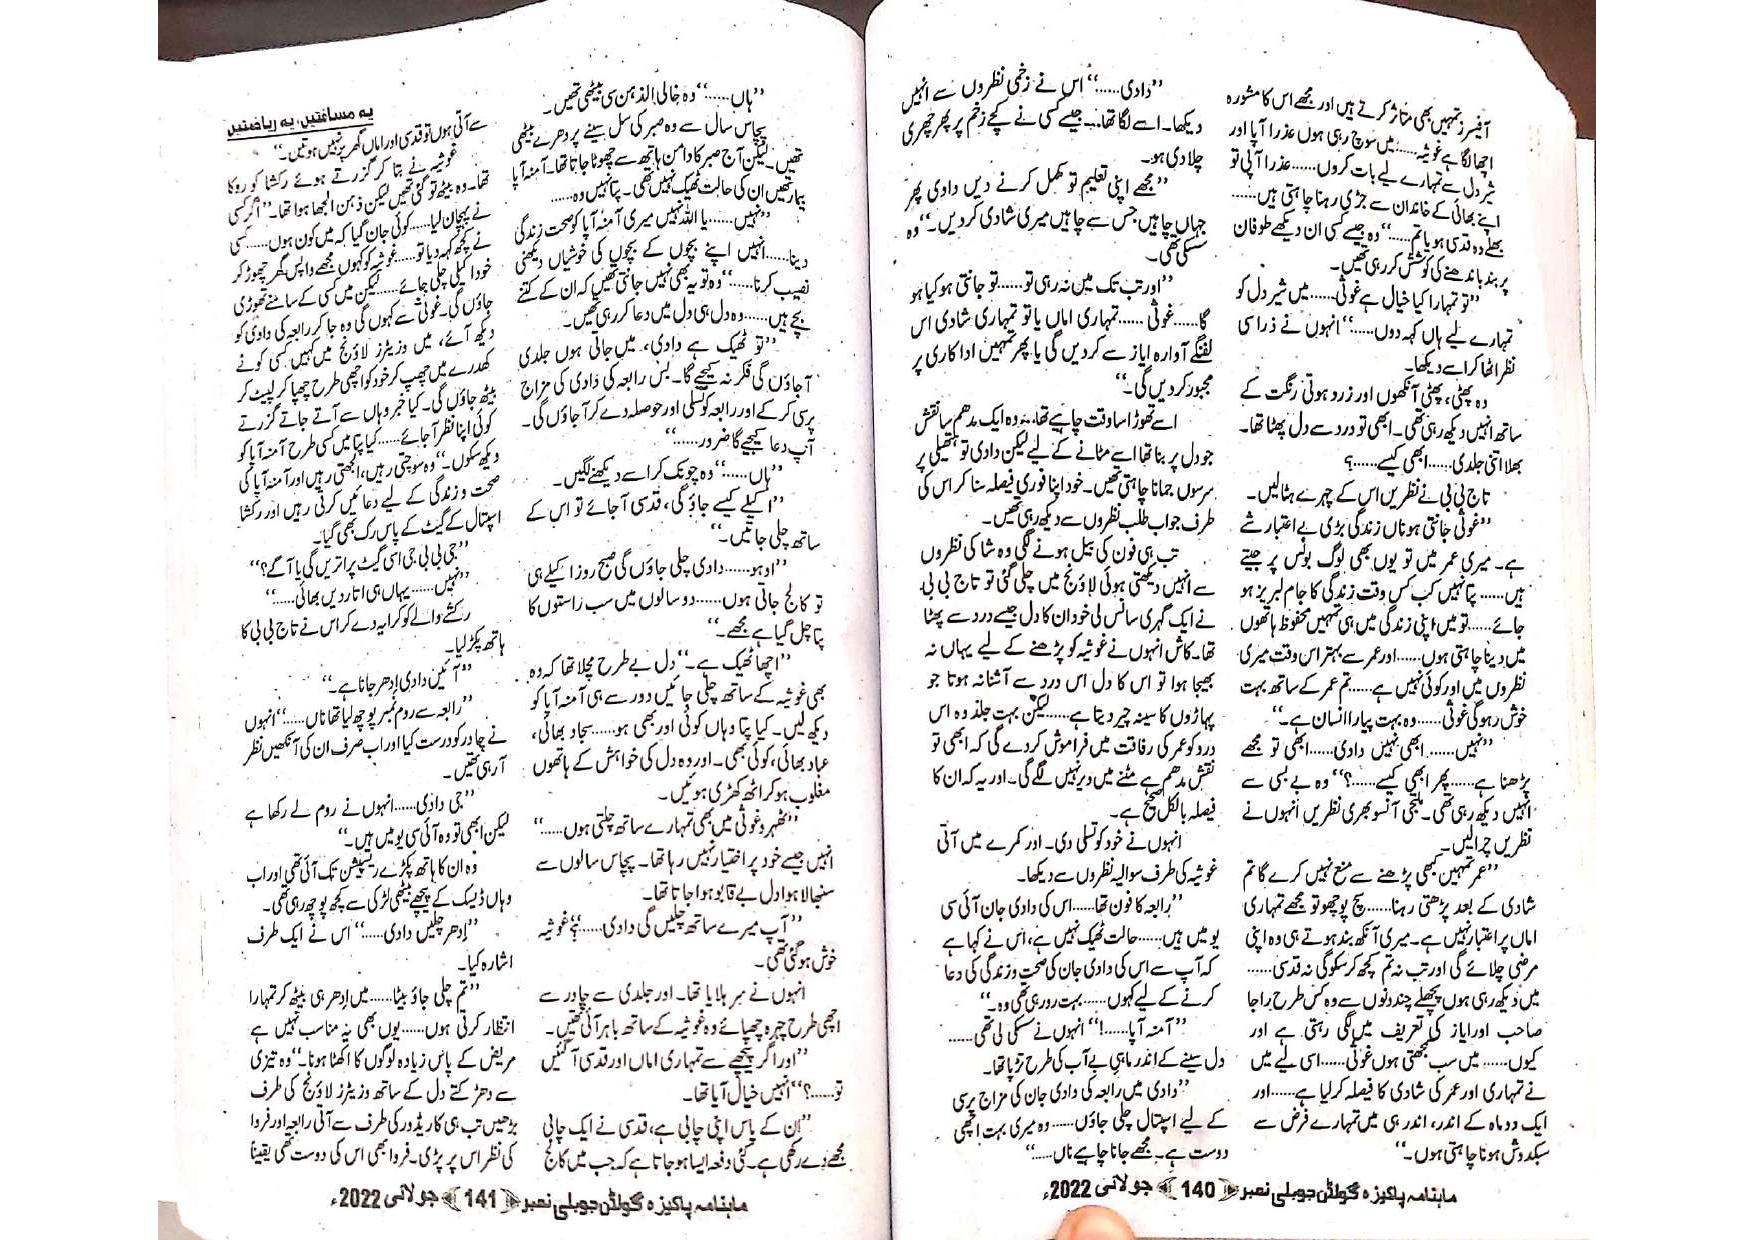 آفیسرز تمہیں بھی متاثر کرتے ہیں اور مجھے اس کا مشورہ
اچھا لگا ہے غوثیہ...... میں سوچ رہی ہوں عذرا آپا اور
شیر دل سے تمہارے لیے بات کروں...... عذرا آپی تو
اپنے بھائی کے خاندان سے جڑی رہنا چاہتی ہیں......
بھلے وہ قدسی ہو یا تم......‘‘ وہ جیسے کسی ان دیکھے طوفان
پر بند باندھنے کی کوشش کر رہی تھیں۔
’’تو تمہارا کیا خیال ہے غوثی...... میں شیر دل کو
تمہارے لیے ہاں کہہ دوں......‘‘ انہوں نے ذرا سی
نظر اٹھا کر اسے دیکھا۔
وہ پھٹی، پھٹی آنکھوں اور زرد ہوتی رنگت کے
ساتھ انہیں دیکھ رہی تھی۔ ابھی تو درد سے دل پھٹا تھا۔
بھلا اتنی جلدی...... ابھی کیسے......؟
تاج بی بی نے نظریں اس کے چہرے سے ہٹا لیں۔
’’غوثی جانتی ہو ناں زندگی بڑی بے اعتبار شے
ہے۔ میری عمر میں تو یوں بھی لوگ بونس پر جیتے
ہیں...... پتا نہیں کب کس وقت زندگی کا جام لبریز ہو
جائے...... تو میں اپنی زندگی میں ہی تمہیں محفوظ ہاتھوں
میں دینا چاہتی ہوں...... اور عمر سے بہتر اس وقت میری
نظروں میں اور کوئی نہیں ہے...... تم عمر کے ساتھ بہت
خوش رہو گی غوثی...... وہ بہت پیارا انسان ہے۔‘‘
’’نہیں...... ابھی نہیں دادی...... ابھی تو مجھے
پڑھنا ہے...... پھر ابھی کیسے......؟‘‘ وہ بے بسی سے
انہیں دیکھ رہی تھی۔ ملتجی آنسو بھری نظریں انہوں نے
نظریں چرا لیں۔
’’عمر تمہیں کبھی پڑھنے سے منع نہیں کرے گا تم
شادی کے بعد پڑھتی رہنا...... سچ پوچھو تو مجھے تمہاری
اماں پر اعتبار نہیں ہے۔ میری آنکھ بند ہوتے ہی وہ اپنی
مرضی چلائے گی اور تب نہ تم کچھ کر سکو گی نہ قدسی......
میں دیکھ رہی ہوں پچھلے چند دنوں سے وہ کس طرح راجا
صاحب اور ایاز کی تعریف میں لگی رہتی ہے اور
کیوں...... میں سب سمجھتی ہوں غوثی...... اسی لیے میں
نے تمہاری اور عمر کی شادی کا فیصلہ کر لیا ہے...... اور
ایک دو ماہ کے اندر، اندر ہی میں تمہارے فرض سے
سبکدوش ہونا چاہتی ہوں۔‘‘
’’دادی......‘‘ اس نے زخمی نظروں سے انہیں
دیکھا۔ اسے لگا تھا... جیسے کسی نے کچے زخم پر پھر چھری
چلا دی ہو۔
’’مجھے اپنی تعلیم تو مکمل کرنے دیں دادی پھر
جہاں چاہیں جس سے چاہیں میری شادی کر دیں۔‘‘ وہ
سسکی تھی۔
’’اور تب تک میں نہ رہی تو...... تو جانتی ہو کیا ہو
گا...... غوثی...... تمہاری اماں یا تو تمہاری شادی اس
لفنگے آوارہ ایاز سے کر دیں گی یا پھر تمہیں اداکاری پر
مجبور کر دیں گی۔‘‘
اسے تھوڑا سا وقت چاہیے تھا... وہ ایک مدھم سا نقش
جو دل پر بنا تھا اسے مٹانے کے لیے لیکن دادی تو ہتھیلی پر
سرسوں جمانا چاہتی تھیں۔ خود اپنا فوری فیصلہ سنا کر اس کی
طرف جواب طلب نظروں سے دیکھ رہی تھیں۔
تب ہی فون کی بیل ہونے لگی وہ شاکی نظروں
سے انہیں دیکھتی ہوئی لاؤنج میں چلی گئی تو تاج بی بی
نے ایک گہری سانس لی خود ان کا دل جیسے درد سے پھٹا
تھا۔ کاش انہوں نے غوثیہ کو پڑھنے کے لیے یہاں نہ
بھیجا ہوتا تو اس کا دل اس درد سے آشنا نہ ہوتا جو
پہاڑوں کا سینہ چیر دیتا ہے...... لیکن بہت جلد وہ اس
درد کو عمر کی رفاقت میں فراموش کر دے گی کہ ابھی تو
نقش مدھم ہے مٹنے میں دیر نہیں لگے گی۔ اور یہ کہ ان کا
فیصلہ بالکل صحیح ہے۔
انہوں نے خود کو تسلی دی۔ اور کمرے میں آتی
غوثیہ کی طرف سوالیہ نظروں سے دیکھا۔
’’رابعہ کا فون تھا...... اس کی دادی جان آئی سی
یو میں ہیں...... حالت ٹھیک نہیں ہے، اس نے کہا ہے
کہ آپ سے اس کی دادی جان کی صحت و زندگی کی دعا
کرنے کے لیے کہوں...... بہت رو رہی تھی وہ۔‘‘
’’آمنہ آپا......!‘‘ انہوں نے سسکی لی تھی......
دل سینے کے اندر ماہی بے آب کی طرح تڑپا تھا۔
’’دادی میں رابعہ کی دادی جان کی مزاج پرسی
کے لیے اسپتال چلی جاؤں...... وہ میری بہت اچھی
دوست ہے۔ مجھے جانا چاہیے ناں......‘‘
ماہنامہ پاکیزہ گولڈن جوبلی نمبر ﴿140﴾ جولائی 2022ء
’’ہاں......‘‘ وہ خالی الذہن سی بیٹھی تھیں۔
پچاس سال سے وہ صبر کی سل سینے پر دھرے بیٹھی
تھیں۔ لیکن آج صبر کا دامن ہاتھ سے چھوٹا جاتا تھا۔ آمنہ آپا
بیمار تھیں ان کی حالت ٹھیک نہیں تھی۔ پتا نہیں وہ......
’’نہیں...... یا اللہ نہیں میری آمنہ آپا کو صحت زندگی
دینا...... انہیں اپنے بچوں کے بچوں کی خوشیاں دیکھنی
نصیب کرنا......‘‘ وہ تو یہ بھی نہیں جانتی تھیں کہ ان کے کتنے
بچے ہیں...... وہ دل ہی دل میں دعا کر رہی تھیں۔
’’تو ٹھیک ہے دادی، میں جاتی ہوں جلدی
آ جاؤں گی فکر نہ کیجیے گا۔ بس رابعہ کی دادی کی مزاج
پرسی کر کے اور رابعہ کو تسلی اور حوصلہ دے کر آ جاؤں گی۔
آپ دعا کیجیے گا ضرور......‘‘
’’ہاں......‘‘ وہ چونک کر اسے دیکھنے لگیں۔
’’اکیلے کیسے جاؤ گی، قدسی آ جائے تو اس کے
ساتھ چلی جائیں۔‘‘
’’اوہو...... دادی چلی جاؤں گی صبح روز اکیلے ہی
تو کالج جاتی ہوں...... دو سالوں میں سب راستوں کا
پتا چل گیا ہے مجھے۔‘‘
’’اچھا ٹھیک ہے۔‘‘ دل بے طرح مچلا تھا کہ وہ
بھی غوثیہ کے ساتھ چلی جائیں دور سے ہی آمنہ آپا کو
دیکھ لیں۔ کیا پتا وہاں کوئی اور بھی ہو...... سجاد بھائی،
عباد بھائی، کوئی بھی۔ اور وہ دل کی خواہش کے ہاتھوں
مغلوب ہو کر اٹھ کھڑی ہوئیں۔
’’ٹھہرو غوثی میں بھی تمہارے ساتھ چلتی ہوں......‘‘
انہیں جیسے خود پر اختیار نہیں رہا تھا۔ پچاس سالوں سے
سنبھالا ہوا دل بے قابو ہوا جاتا تھا۔
’’آپ میرے ساتھ چلیں گی دادی......؟‘‘ غوثیہ
خوش ہو گئی تھی۔
انہوں نے سر ہلایا تھا۔ اور جلدی سے چادر سے
اچھی طرح چہرہ چھپائے وہ غوثیہ کے ساتھ باہر آئی تھیں۔
’’اور اگر پیچھے سے تمہاری اماں اور قدسی آ گئیں
تو......؟‘‘ انہیں خیال آیا تھا۔
’’ان کے پاس اپنی چابی ہے، قدسی نے ایک چابی
مجھے دے رکھی ہے۔ کئی دفعہ ایسا ہو جاتا ہے کہ جب میں کالج
یہ مسافتیں، یہ ریاضتیں
سے آتی ہوں تو قدسی اور اماں گھر پر نہیں ہوتیں۔‘‘
غوثیہ نے بتا کر گزرتے ہوئے رکشا کو روکا
تھا۔ وہ بیٹھ تو گئی تھیں لیکن ذہن الجھا ہوا تھا۔ ’’اگر کسی
نے پہچان لیا...... کوئی جان گیا کہ میں کون ہوں...... کسی
نے کچھ کہہ دیا تو...... غوثیہ کو کہوں مجھے واپس گھر چھوڑ کر
خود اکیلی چلی جائے...... لیکن میں کسی کے سامنے تھوڑی
جاؤں گی۔ غوثی سے کہوں گی وہ جا کر رابعہ کی دادی کو
دیکھ آئے، میں وزیٹرز لاؤنج میں کہیں کسی کونے
کھدرے میں چھپ کر خود کو اچھی طرح چھپا کر لپیٹ کر
بیٹھ جاؤں گی۔ کیا خبر وہاں سے آتے جاتے گزرتے
کوئی اپنا نظر آ جائے...... کیا پتا میں کسی طرح آمنہ آپا کو
دیکھ سکوں۔‘‘ وہ سوچتی رہیں، الجھتی رہیں اور آمنہ آپا کی
صحت و زندگی کے لیے دعائیں کرتی رہیں اور رکشا
اسپتال کے گیٹ کے پاس رک بھی گیا۔
’’جی بی بی جی اسی گیٹ پر اتریں گی یا آگے؟‘‘
’’نہیں...... یہاں ہی اتار دیں بھائی......‘‘
رکشے والے کو کرایہ دے کر اس نے تاج بی بی کا
ہاتھ پکڑ لیا۔
’’آئیں دادی اِدھر جانا ہے۔‘‘
’’رابعہ سے روم نمبر پوچھ لیا تھا ناں......‘‘ انہوں
نے چادر کو درست کیا اور اب صرف ان کی آنکھیں نظر
آ رہی تھیں۔
’’جی دادی...... انہوں نے روم لے رکھا ہے
لیکن ابھی تو وہ آئی سی یو میں ہیں۔‘‘
وہ ان کا ہاتھ پکڑے ریسپشن تک آئی تھی اور اب
وہاں ڈیسک کے پیچھے بیٹھی لڑکی سے کچھ پوچھ رہی تھی۔
’’اِدھر چلیں دادی......‘‘ اس نے ایک طرف
اشارہ کیا۔
’’تم چلی جاؤ بیٹا...... میں اِدھر ہی بیٹھ کر تمہارا
انتظار کرتی ہوں...... یوں بھی یہ مناسب نہیں ہے
مریض کے پاس زیادہ لوگوں کا اکٹھا ہونا۔‘‘ وہ تیزی
سے دھڑکتے دل کے ساتھ وزیٹرز لاؤنج کی طرف
بڑھیں تب ہی کاریڈور کی طرف سے آتی رابعہ اور فروا
کی نظر اس پر پڑی۔ فروا بھی اس کی دوست تھی یقیناً
ماہنامہ پاکیزہ گولڈن جوبلی نمبر ﴿141﴾ جولائی 2022ء